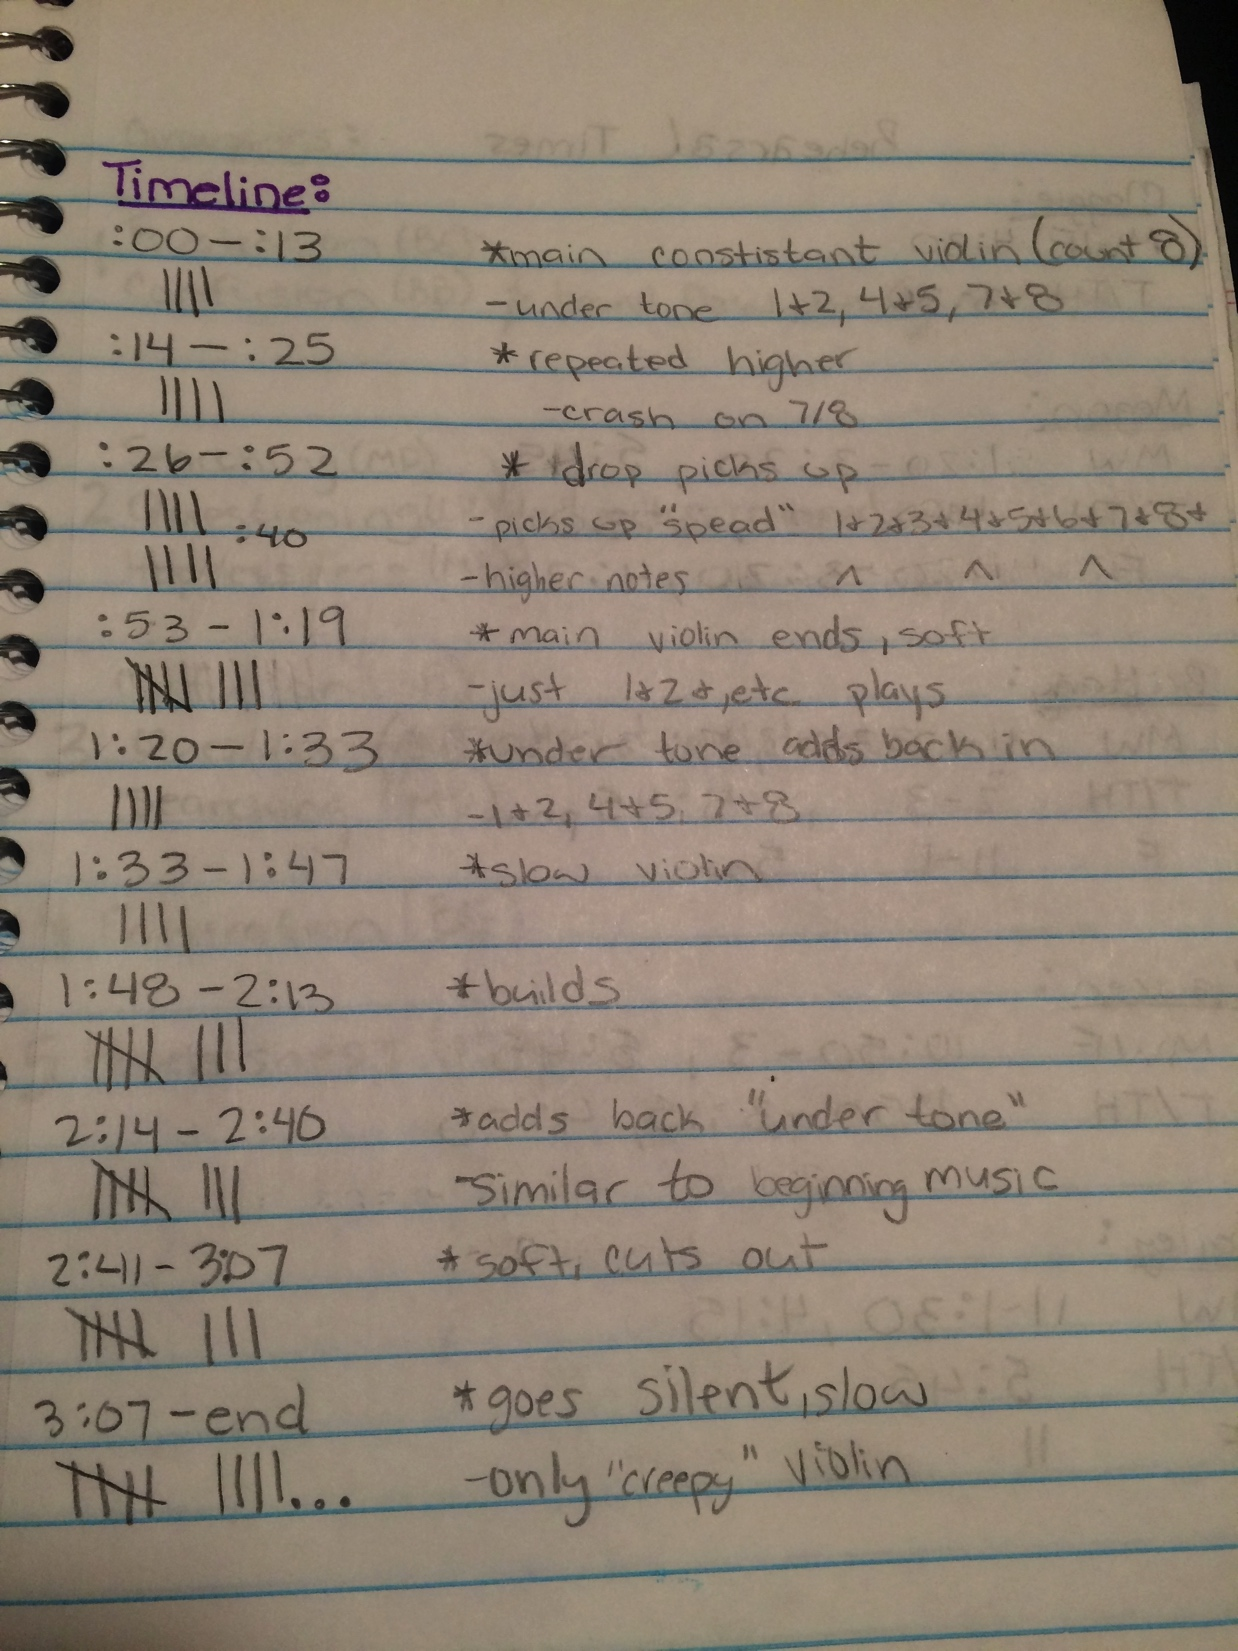 Timeline:
:00-:13 *main constistant violin (count 8)
|||| -under tone 1+2, 4+5, 7+8
:14-:25 *repeated higher
|||| -crash on 7/8
:26-:52 * drop picks up
|||| :40 -picks up "spead" 1+2+3+4+5+6+7+8+
|||| -higher notes ^ ^ ^
:53-1:19 *main violin ends, soft
|||| ||| -just 1+2+, etc. plays
1:20-1:33 *under tone adds back in
|||| -1+2, 4+5, 7+8
1:33-1:47 *slow violin
||||
1:48-2:13 *builds
|||| |||
2:14-2:40 *adds back "under tone"
|||| ||| -similar to beginning music
2:41-3:07 *soft, cuts out
|||| |||
3:07-end *goes silent, slow
|||| ||||... -only "creepy" violin